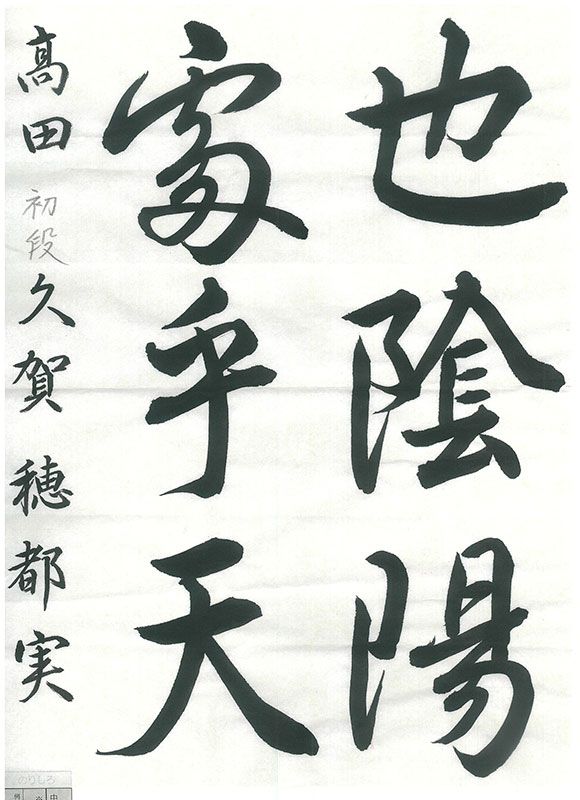 也陰陽
處乎天
高田 初段 久賀 穂都実
のりしろ